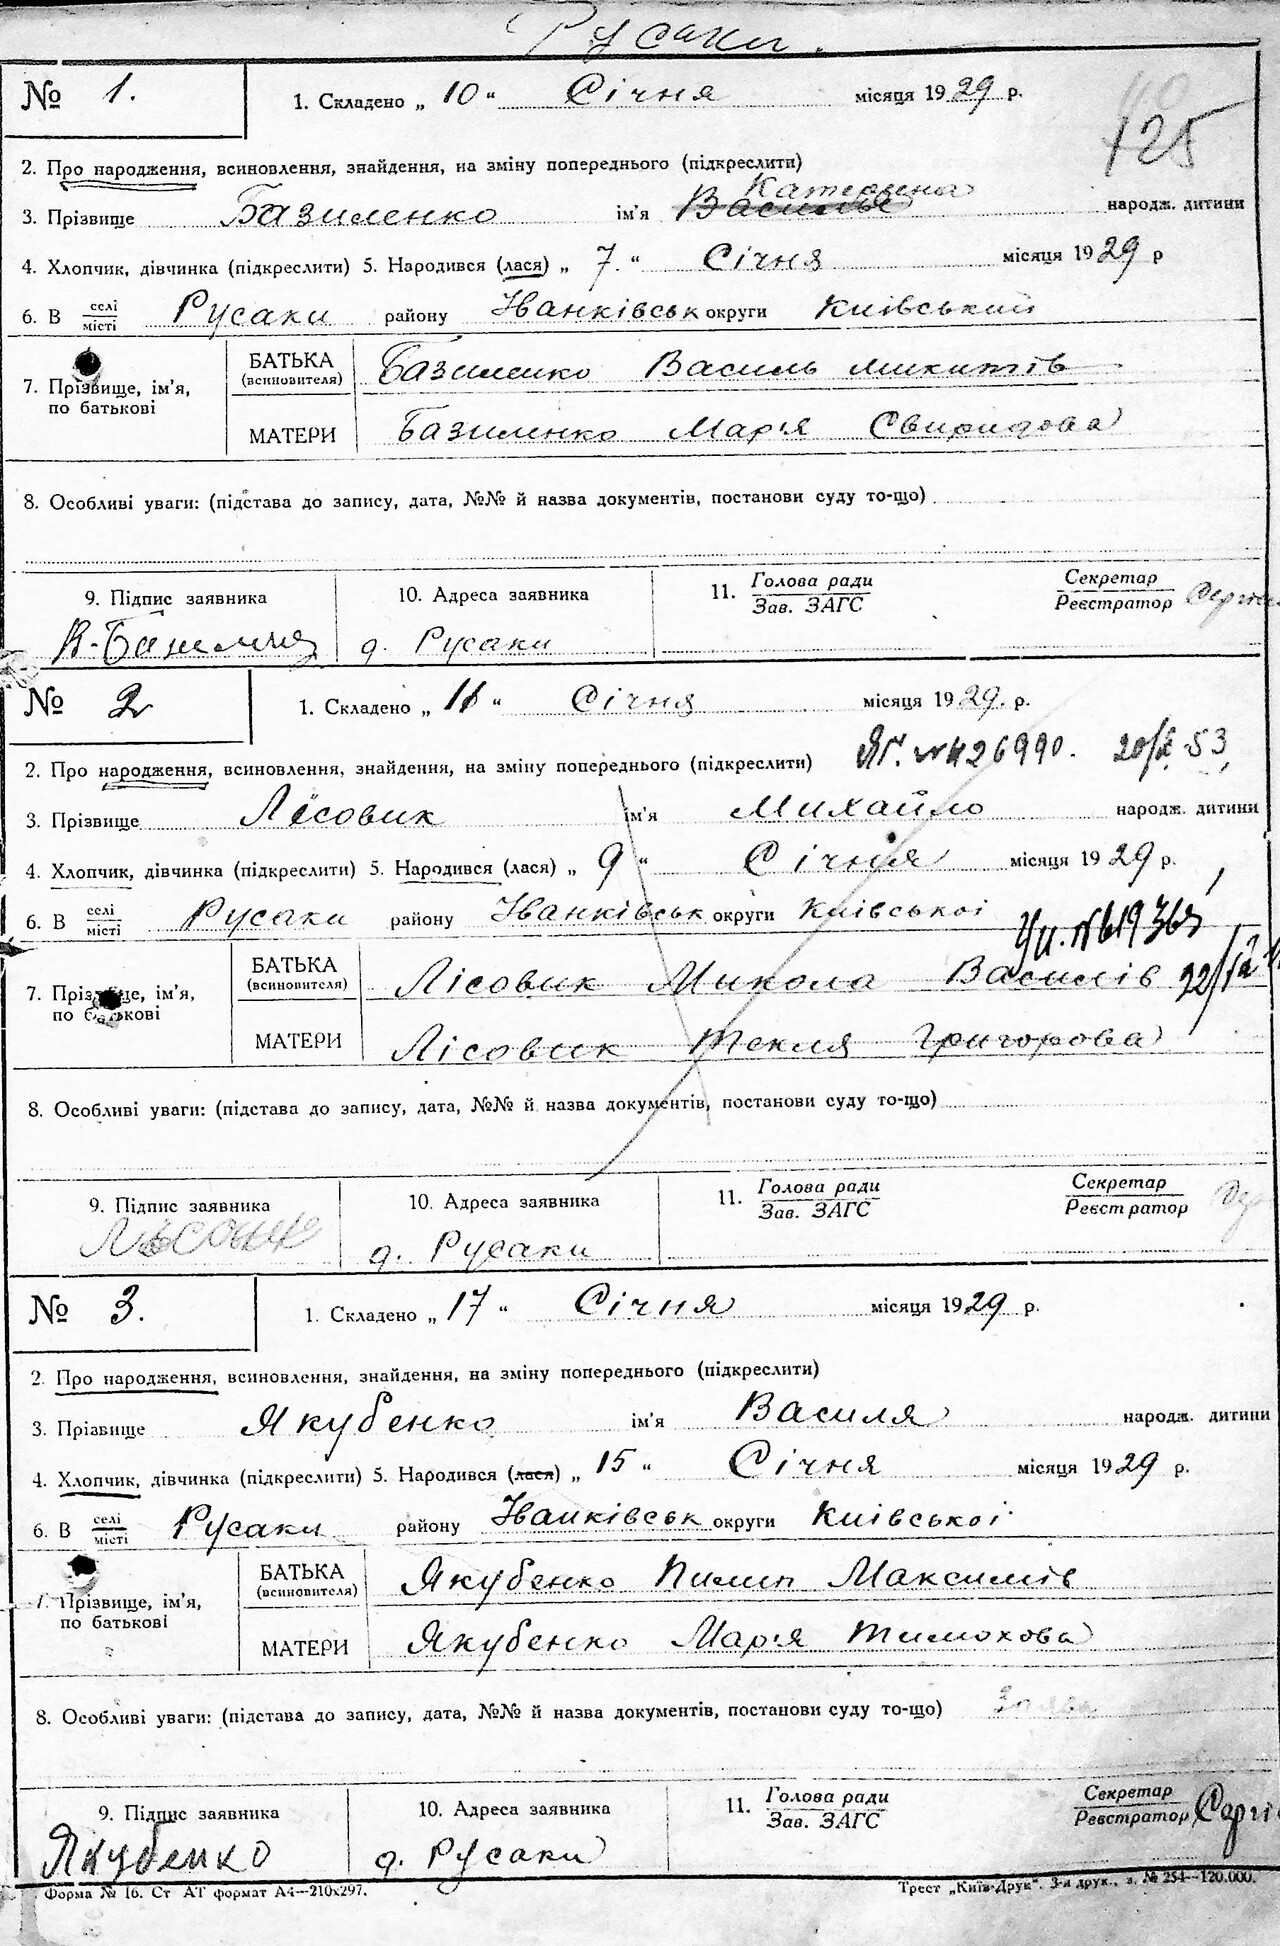 Русаки.
№ 1. 1. Складено „ 10 “ Січня місяця 1929 р.
40
125
2. Про народження, всиновлення, знайдення, на зміну попереднього (підкреслити)
Катерина
3. Прізвище Базиленко ім'я Василье народж. дитини
4. Хлопчик, дівчинка (підкреслити) 5. Народився (лася) „ 7. “ Січня місяця 1929 р
6. В селі/місті Русаки району Іванківськ округи Київський
7. Прізвище, ім'я, по батькові
БАТЬКА (всиновителя) Базиленко Василь Микитів
МАТЕРИ Базиленко Мар'я Свиридова
8. Особливі уваги: (підстава до запису, дата, №№ й назва документів, постанови суду то-що)
9. Підпис заявника 10. Адреса заявника 11. Голова ради/Зав. ЗАГС Секретар/Реєстратор
д. Русаки
№ 2 1. Складено „ 11 “ Січня місяця 1929. р.
ЯГ. № 426990. 20/X-53
2. Про народження, всиновлення, знайдення, на зміну попереднього (підкреслити)
3. Прізвище Лісовик ім'я Михайло народж. дитини
4. Хлопчик, дівчинка (підкреслити) 5. Народився (лася) „ 9 “ Січня місяця 1929 р.
6. В селі/місті Русаки району Іванківськ округи Київської
7. Прізвище, ім'я, по батькові
БАТЬКА (всиновителя) Лісовик Микола Василів
МАТЕРИ Лісовик Текля Григорова
8. Особливі уваги: (підстава до запису, дата, №№ й назва документів, постанови суду то-що)
9. Підпис заявника 10. Адреса заявника 11. Голова ради/Зав. ЗАГС Секретар/Реєстратор
д. Русаки
№ 3. 1. Складено „ 17 “ Січня місяця 1929 р.
2. Про народження, всиновлення, знайдення, на зміну попереднього (підкреслити)
3. Прізвище Якубенко ім'я Василя народж. дитини
4. Хлопчик, дівчинка (підкреслити) 5. Народився (лася) „ 15 “ Січня місяця 1929 р.
6. В селі/місті Русаки району Іванківськ округи Київської
7. Прізвище, ім'я, по батькові
БАТЬКА (всиновителя) Якубенко Пилип Максимів
МАТЕРИ Якубенко Мар'я Тимохова
8. Особливі уваги: (підстава до запису, дата, №№ й назва документів, постанови суду то-що) Заява
9. Підпис заявника 10. Адреса заявника 11. Голова ради/Зав. ЗАГС Секретар/Реєстратор
Якубенко д. Русаки
Форма № 16. Ст АТ формат А4—210х297. Трест „Київ-Друк“. 3-я друк., з. № 254—120.000.